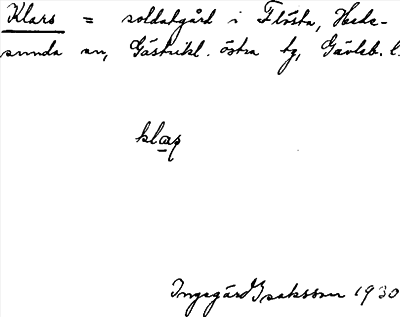 Klars = soldatgård i Flösta, Heds-
sunda sn, Gästrikl. östra tg, Gävleb. l.
klaṣ
Ingegärd Isaksson 1930